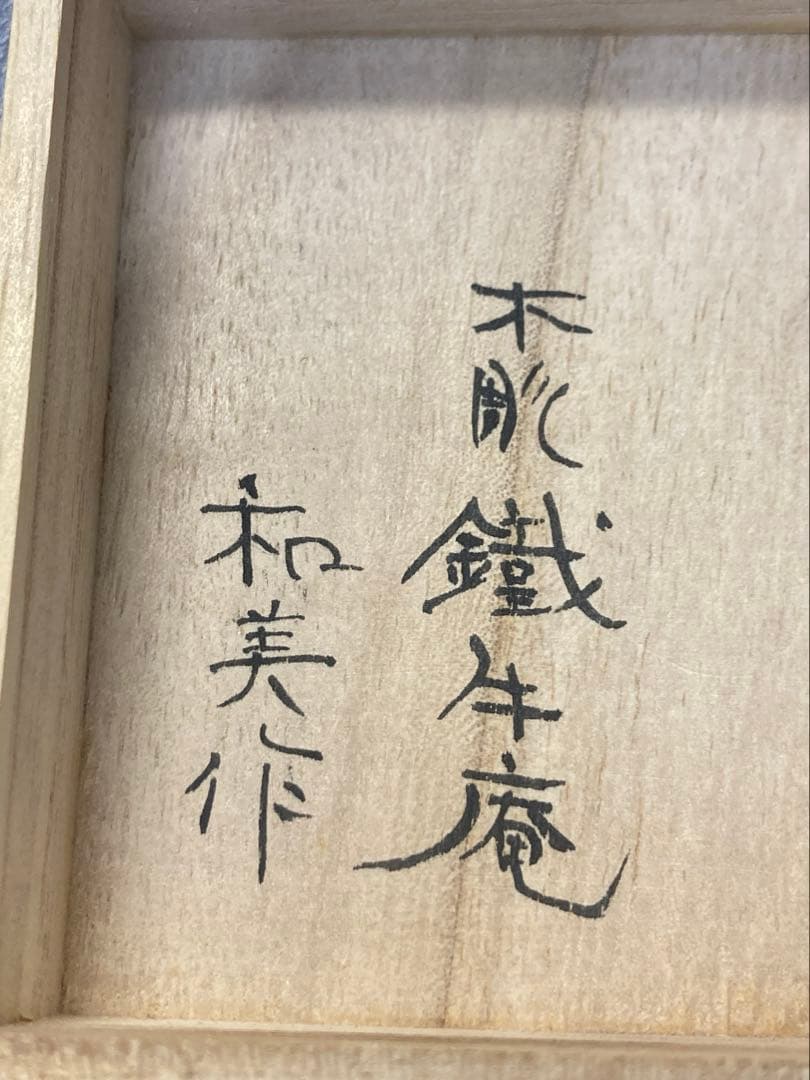 木彫 鐵牛庵
和美作